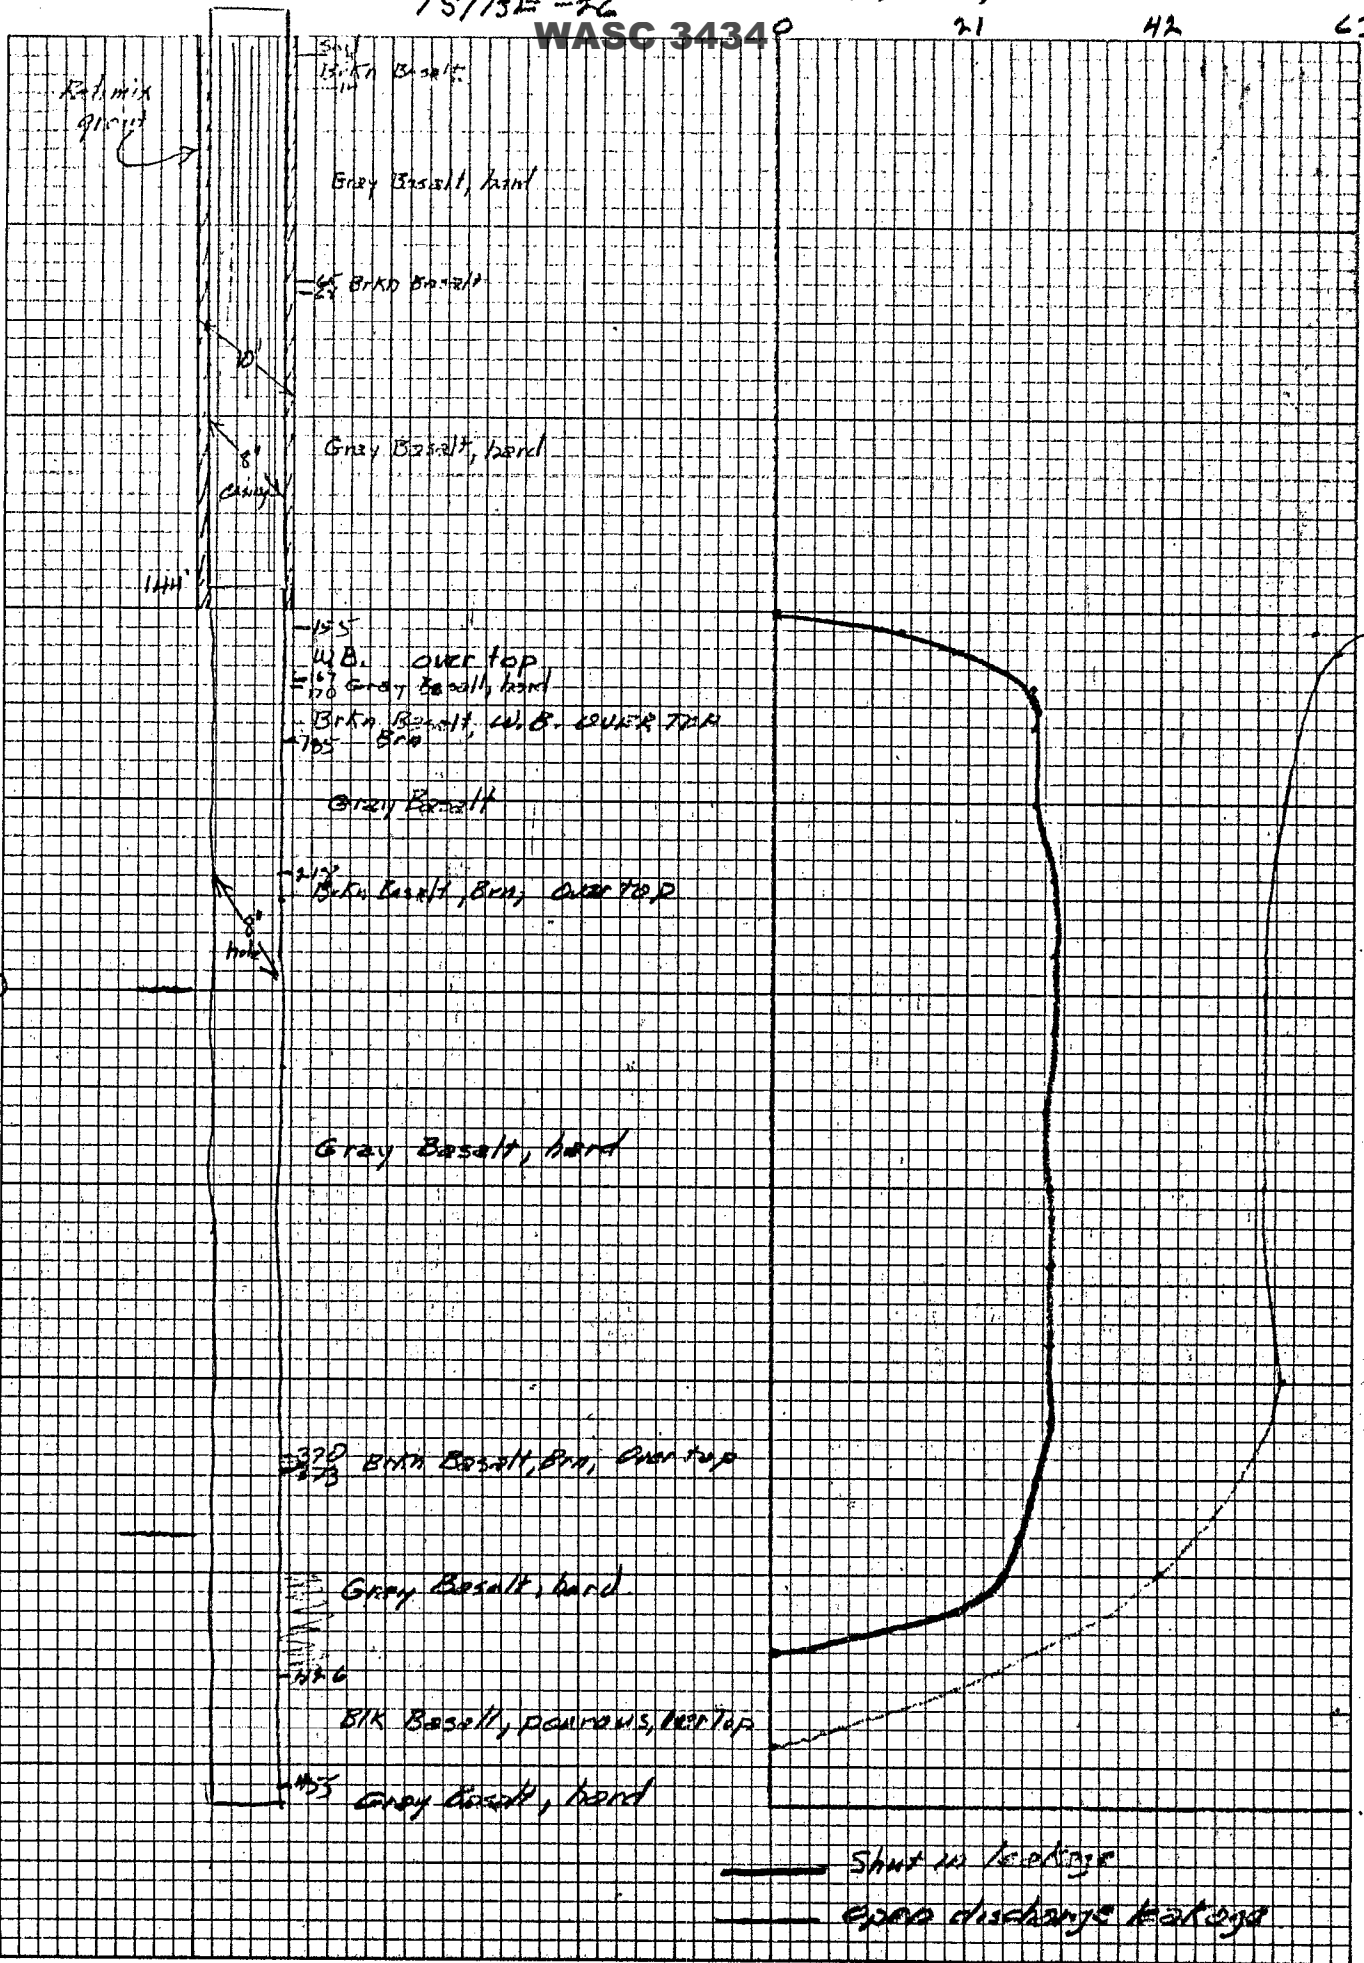 1S/13E-26
WASC 3434
0 21 42
Brkn Basalt
Redi mix
grout
Gray Basalt, hard
65 Brkn Basalt
10"
Gray Basalt, hard
8"
casing
144'
155
W.B. over top
167
170 Gray Basalt, hard
Brkn Basalt, W.B. OVER TOP
185 Brn
Gray Basalt
217
Brkn Basalt, Brn, over top
8"
hole
Gray Basalt, hard
370
373 Brkn Basalt, Brn, Over top
Gray Basalt, hard
426
Blk Basalt, pourous, over Top
455 Gray Basalt, hard
Shut in leakage
open discharge leakage